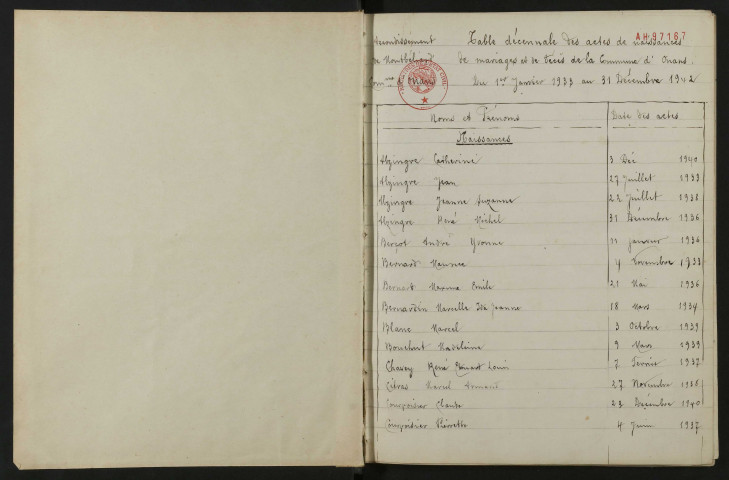 Arrondissement
de Montbéliard
Commune d'Onans
AH 97167
Table décennale des actes de naissances
de mariages et de décès de la Commune d'Onans.
Du 1er Janvier 1933 au 31 Décembre 1942
Noms et Prénoms Date des actes
Naissances
Alzingre Catherine 3 1940
Alzingre Jean 27 Juillet 1933
Alzingre Jeanne Suzanne 22 Juillet 1938
Alzingre René Michel 31 Décembre 1936
André Yvonne 11 Janvier 1936
Bernard Maurice 4 Novembre 1933
Bernard Emile 21 Mai 1936
Bernardin Marcelle Ida Jeanne 18 Mars 1934
Blanc Marcel 3 Octobre 1939
Bouchart Madeleine 9 Mars 1939
Chavey René Edouard Louis 2 Février 1937
Marcel Armand 27 Novembre 1936
Courpoisier Claude 23 Décembre 1940
Courpoisier Pierrette 4 Juin 1937